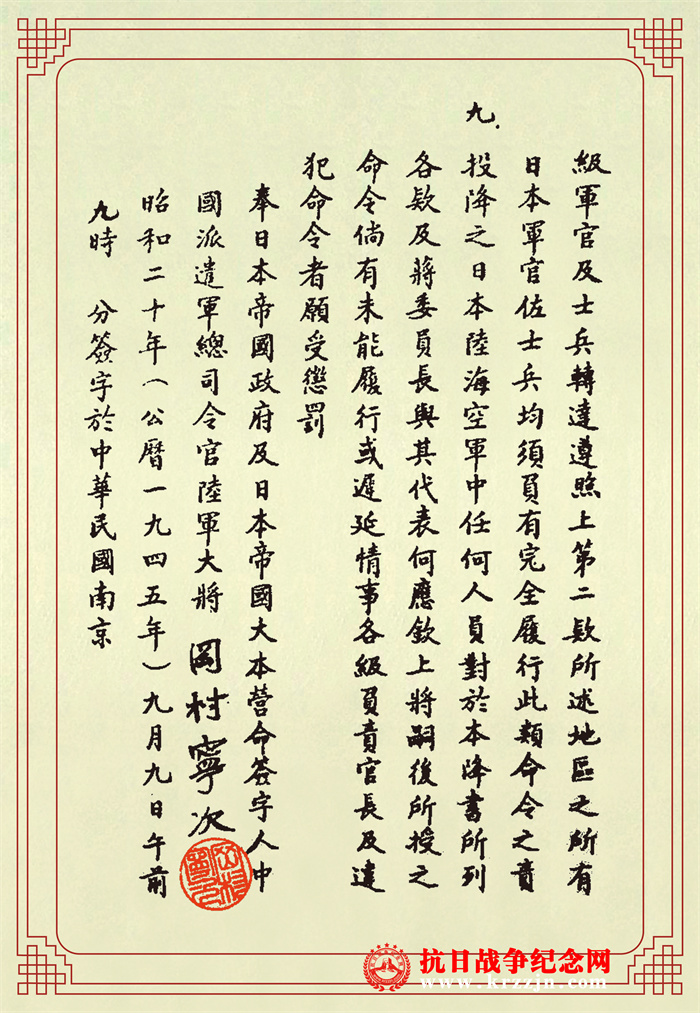 級軍官及士兵轉達遵照上第二欵所述地區之所有
日本軍官佐士兵均須員有完全履行此類命令之責
九.投降之日本陸海空軍中任何人員對於本降書所列
各欵及蔣委員長與其代表何應欽上將嗣後所授之
命令倘有未能履行或遲延情事各級員責官長及違
犯命令者願受懲罰
奉日本帝國政府及日本帝國大本營命簽字人中
國派遣軍總司令官陸軍大將 岡村寧次
昭和二十年(公曆一九四五年)九月九日午前
九時 分簽字於中華民國南京
抗日战争纪念网
www.krzzjn.com